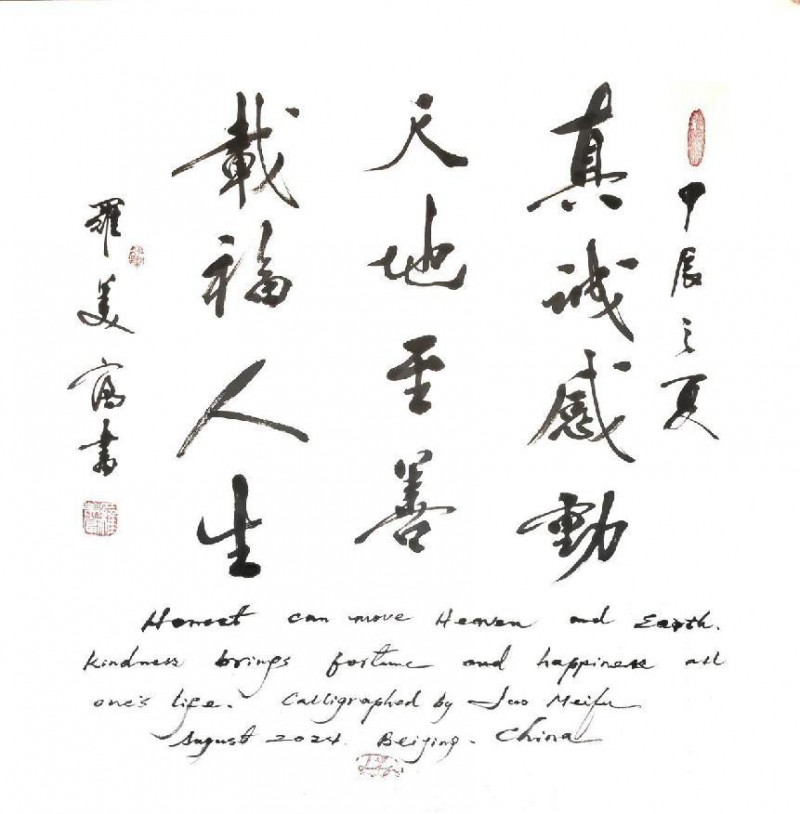 甲辰之夏
真诚感動
天地至善
載福人生
羅美富書
Honest can move Heaven and Earth.
kindness brings fortune and happiness all
one's life. Calligraphed by Luo Meifu
August 2024. Beijing. China